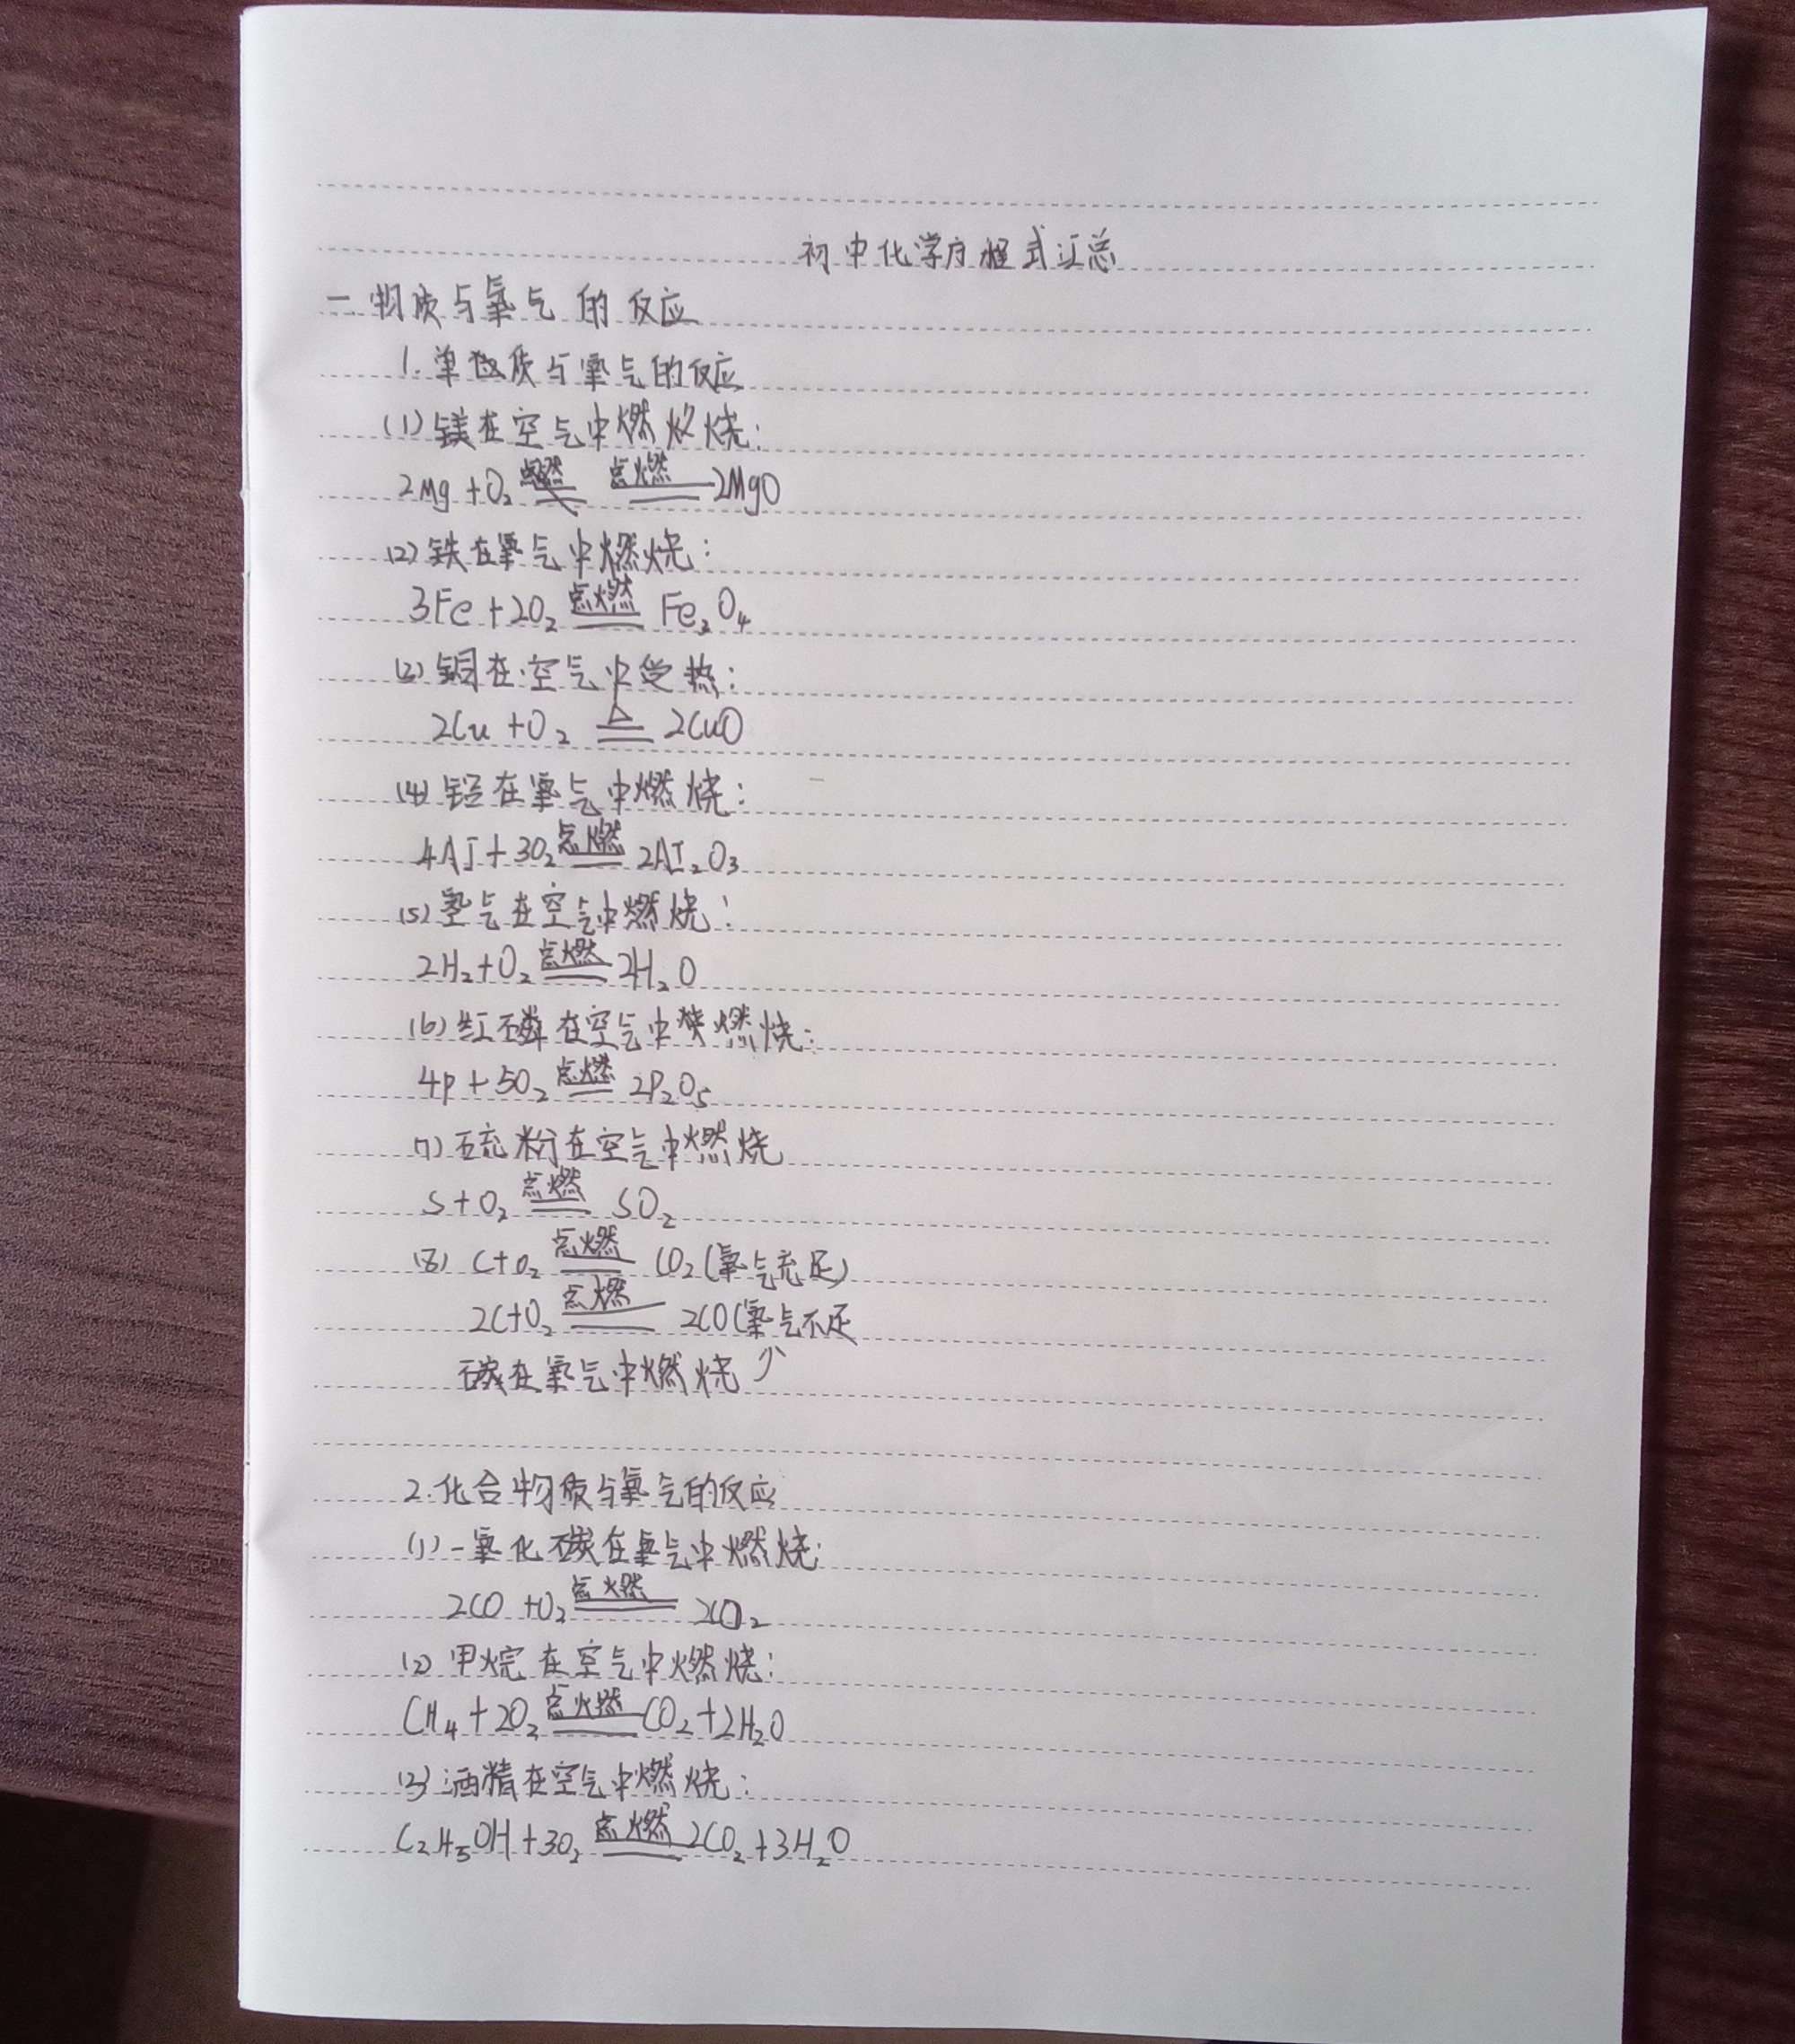 初中化学方程式汇总
一.物质与氧气的反应
1.单质与氧气的反应
(1)镁在空气中燃烧:
2Mg+O₂ 点燃 2MgO
(2)铁在氧气中燃烧:
3Fe+2O₂ 点燃 Fe₃O₄
(3)铜在空气中受热:
2Cu+O₂ △ 2CuO
(4)铝在氧气中燃烧:
4Al+3O₂ 点燃 2Al₂O₃
(5)氢气在空气中燃烧:
2H₂+O₂ 点燃 2H₂O
(6)红磷在空气中燃烧:
4P+5O₂ 点燃 2P₂O₅
(7)硫粉在空气中燃烧
S+O₂ 点燃 SO₂
(8) C+O₂ 点燃 CO₂(氧气充足)
2C+O₂ 点燃 2CO(氧气不足
碳在氧气中燃烧
2.化合物质与氧气的反应
(1)一氧化碳在氧气中燃烧:
2CO+O₂ 点燃 2CO₂
(2)甲烷在空气中燃烧:
CH₄+2O₂ 点燃 CO₂+2H₂O
(3)酒精在空气中燃烧:
C₂H₅OH+3O₂ 点燃 2CO₂+3H₂O